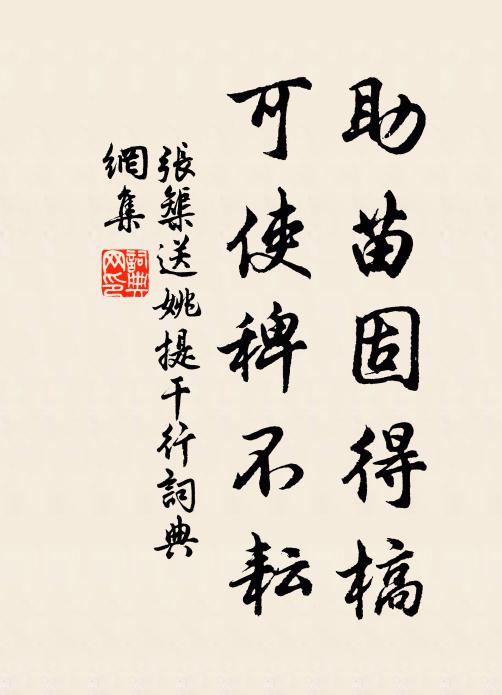 助苗固得槁
可使稗不耘
張榘送姚提干行詞典
網集
詞典
网印